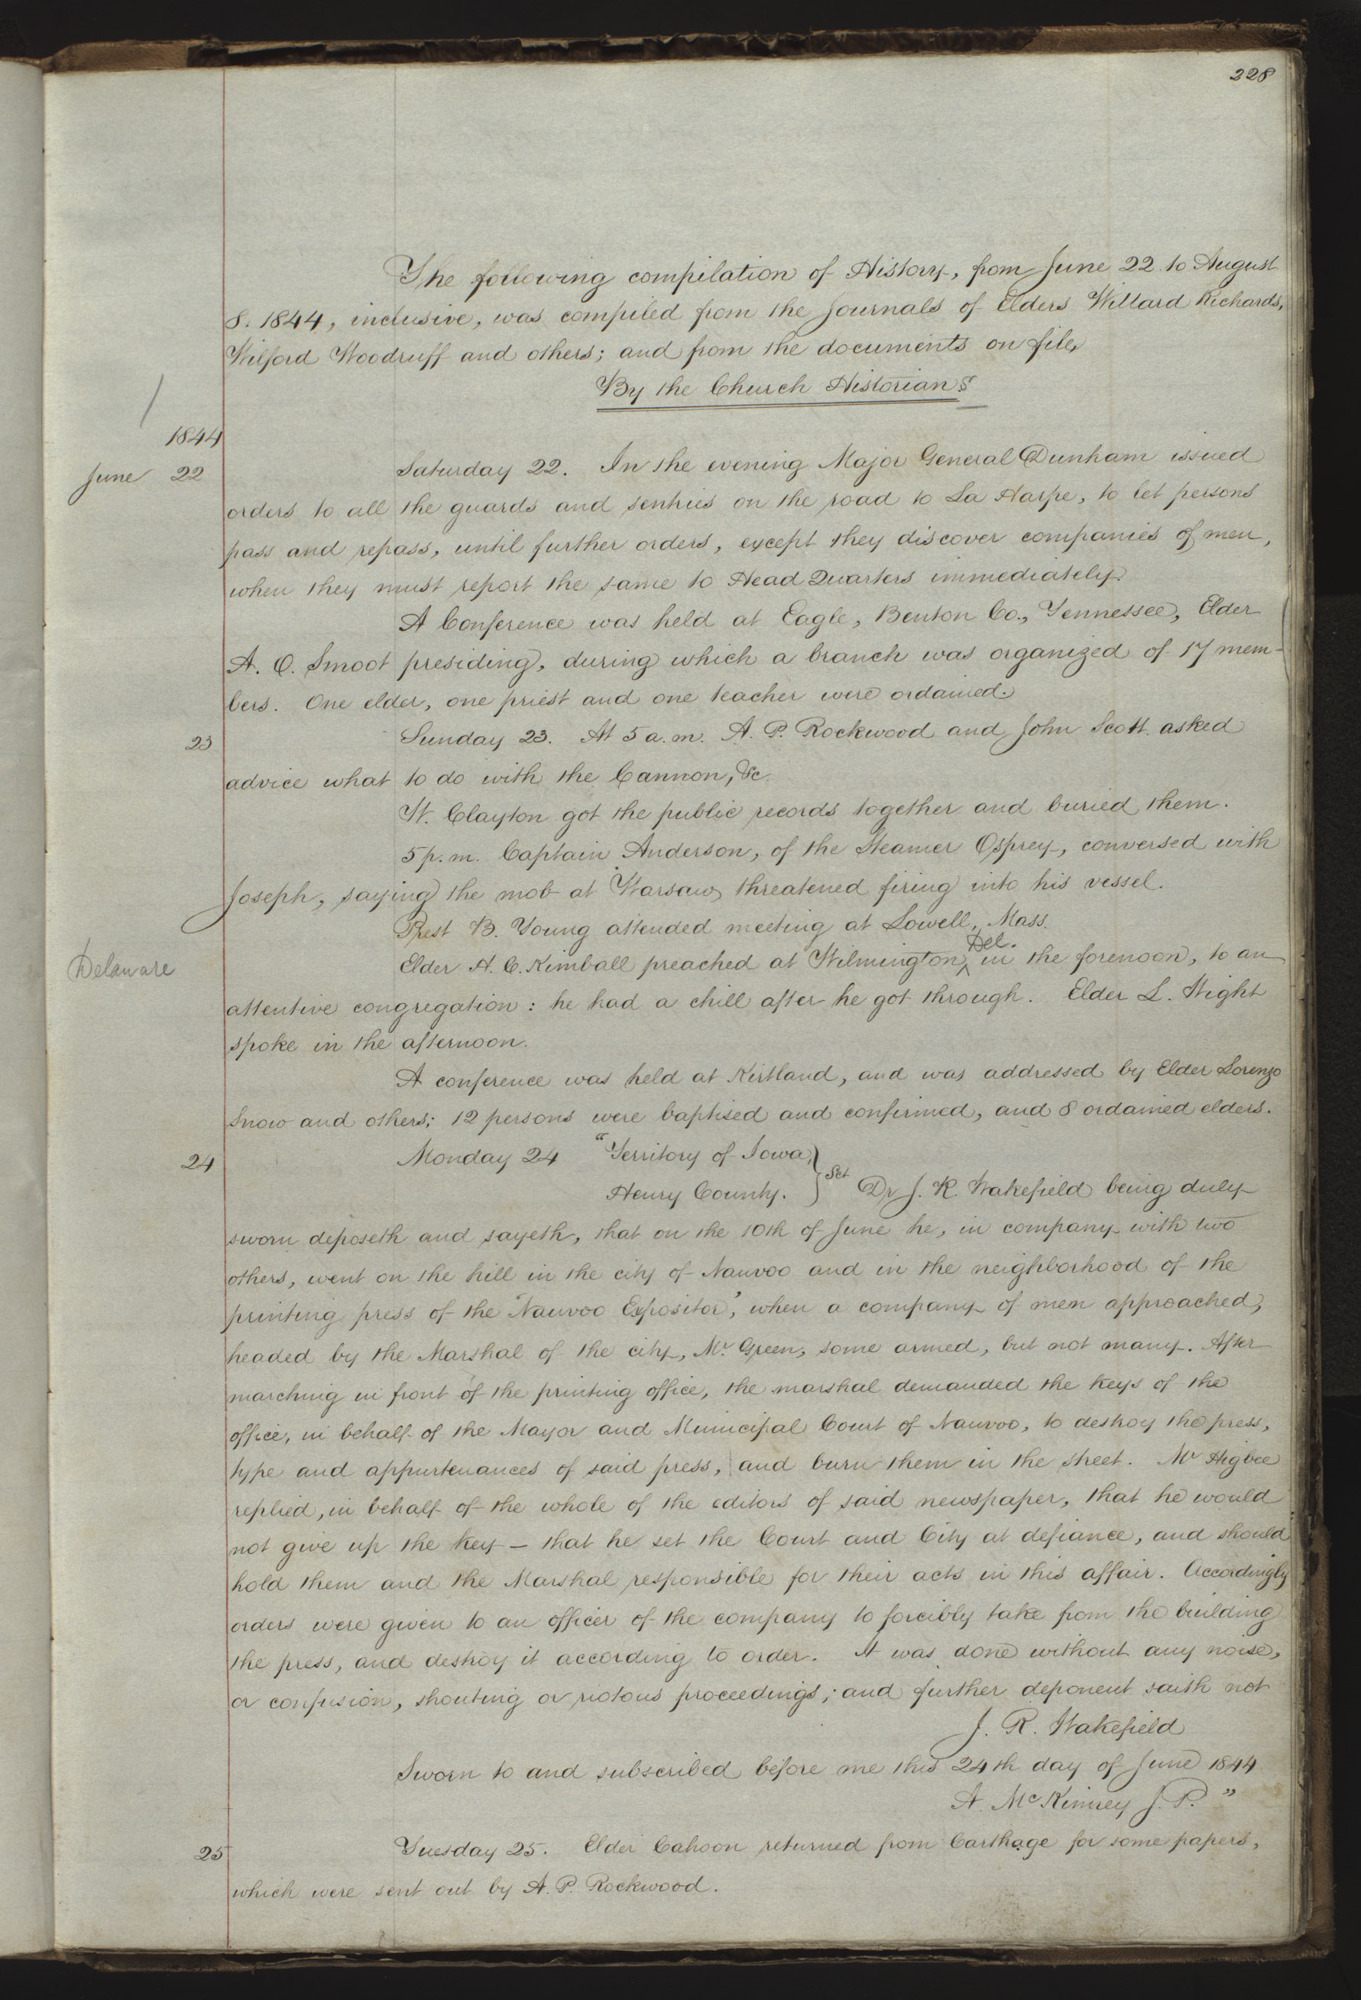 228
The following compilation of History, from June 22 to August
8. 1844, inclusive, was compiled from the Journals of Elders Willard Richards,
Wilford Woodruff and others; and from the documents on file,
By the Church Historians
1844
June 22
Saturday 22. In the evening Major General Dunham issued
orders to all the guards and sentries on the road to La Harpe, to let persons
pass and repass, until further orders, except they discover companies of men,
when they must report the same to Head Quarters immediately.
A Conference was held at Eagle, Benton Co., Tennessee, Elder
A. O. Smoot presiding, during which a branch was organized of 17 mem-
bers. One elder, one priest and one teacher were ordained.
23
Sunday 23. At 5 a.m. A. P. Rockwood and John Scott asked
advice what to do with the Cannon, &c.
W. Clayton got the public records together and buried them.
5 p.m. Captain Anderson, of the Steamer Osprey, conversed with
Joseph, saying the mob at Warsaw threatened firing into his vessel.
Prest B. Young attended meeting at Lowell, Mass.
Delaware
Elder H. C. Kimball preached at Wilmington, Del. in the forenoon, to an
attentive congregation: he had a chill after he got through. Elder L. Wight
spoke in the afternoon.
A conference was held at Kirtland, and was addressed by Elder Lorenzo
Snow and others; 12 persons were baptised and confirmed, and 8 ordained elders.
24
Monday 24 "Territory of Iowa,
Henry County. } Sct Dr J. R. Wakefield being duly
sworn deposeth and sayeth, that on the 10th of June he, in company with two
others, went on the hill in the city of Nauvoo and in the neighborhood of the
printing press of the 'Nauvoo Expositor,' when a company of men approached,
headed by the Marshal of the city, Mr. Green, some armed, but not many. After
marching in front of the printing office, the marshal demanded the keys of the
office, in behalf of the Mayor and Municipal Court of Nauvoo, to destroy the press,
type and appurtenances of said press, and burn them in the street. Mr Higbee
replied, in behalf of the whole of the editors of said newspaper, that he would
not give up the key — that he set the Court and City at defiance, and should
hold them and the Marshal responsible for their acts in this affair. Accordingly
orders were given to an officer of the company to forcibly take from the building
the press, and destroy it according to order. It was done without any noise,
or confusion, shouting or riotous proceedings; and further deponent saith not
J. R. Wakefield
Sworn to and subscribed before me this 24th day of June 1844
A. McKinney J. P."
25
Tuesday 25. Elder Cahoon returned from Carthage for some papers,
which were sent out by A. P. Rockwood.